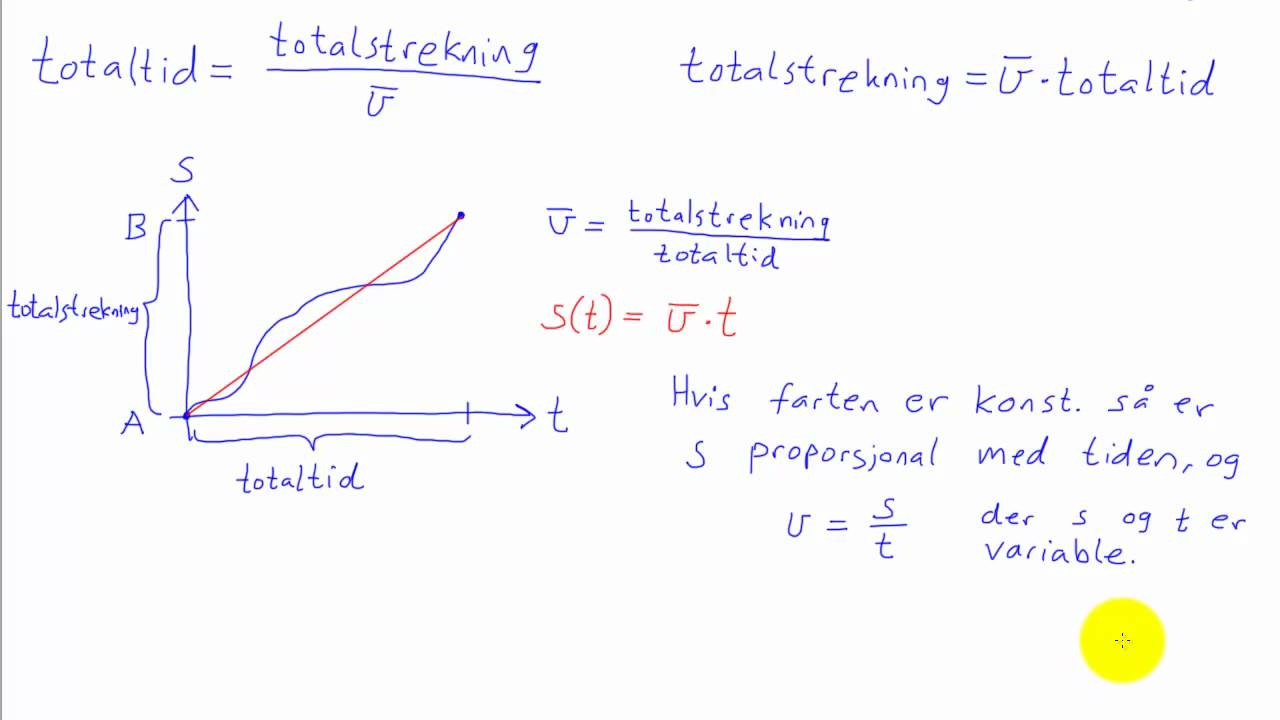 totaltid = totalstrekning / v̄
totalstrekning = v̄ · totaltid
S
B
totalstrekning
A
t
totaltid
v̄ = totalstrekning / totaltid
s(t) = v̄ · t
Hvis farten er konst. så er
s proporsjonal med tiden, og
v = s / t der s og t er
variable.